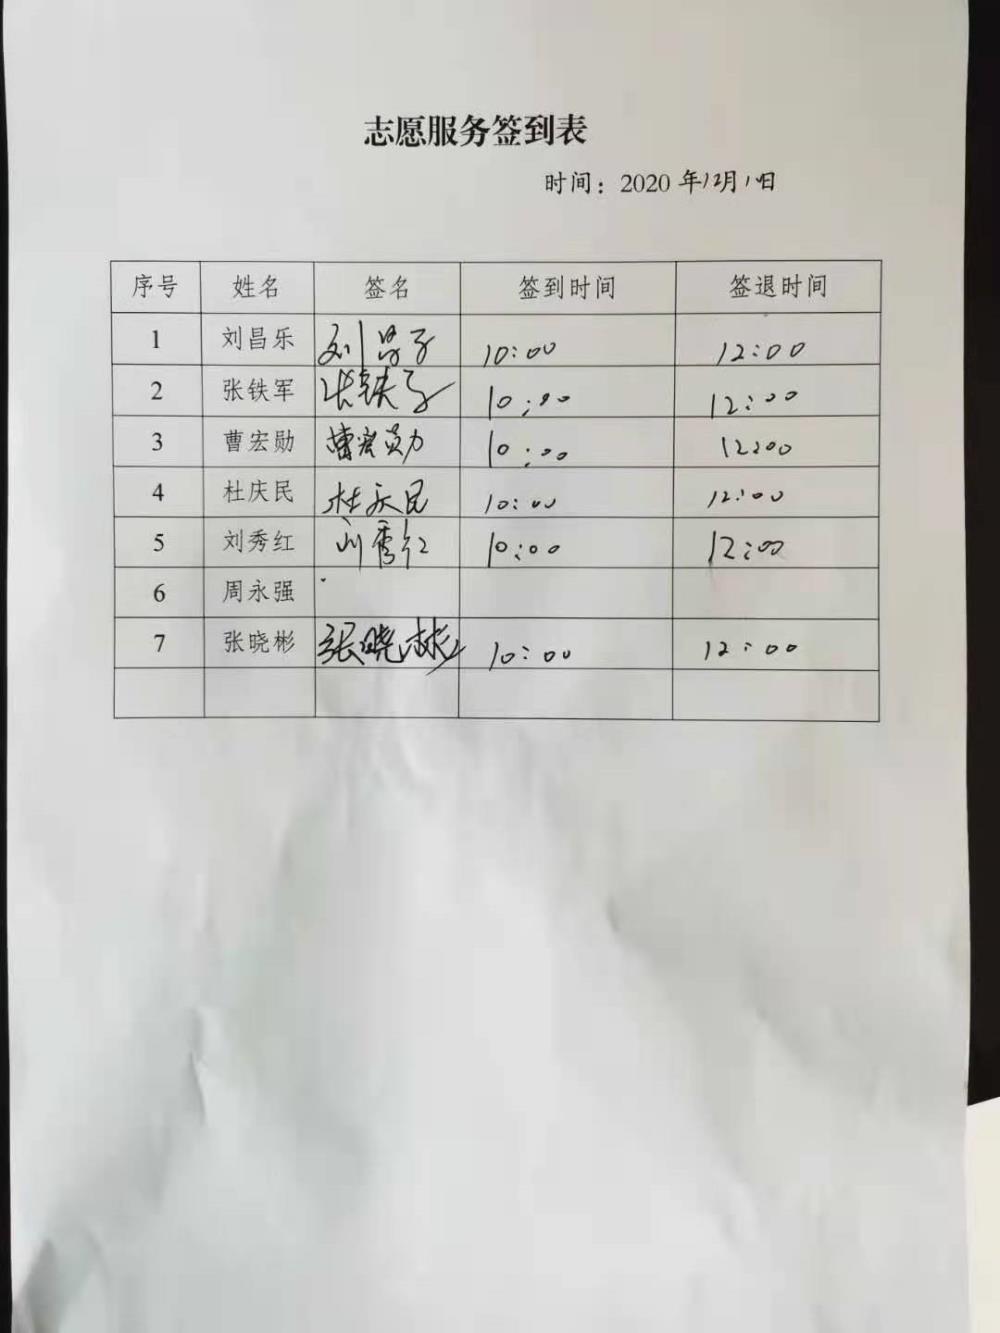 志愿服务签到表
时间：2020年12月1日
序号 姓名 签名 签到时间 签退时间
1 刘昌乐 刘昌乐 10:00 12:00
2 张铁军 张铁军 10:00 12:00
3 曹宏勋 曹宏勋 10:00 12:00
4 杜庆民 杜庆民 10:00 12:00
5 刘秀红 刘秀红 10:00 12:00
6 周永强
7 张晓彬 张晓彬 10:00 12:00